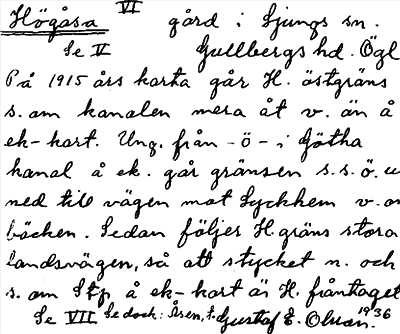 Högåsa VI gård i Ljungs sn.
Se IV Gullbergs hd. Ögl
På 1915 års karta går H. östgräns
s. om kanalen mera åt v. än å
ek-kart. Ung. från -ö- i Götha
kanal å ek. går gränsen s.s.ö. u
ned till vägen mot Lyckhem v. om
bäcken. Sedan följer H. gräns stora
landsvägen, så att stycket n. och
s. om Stp å ek-kart är H. fråntaget
Se VII Se dock: Åsen, t. Gustaf E. Olsson 1936